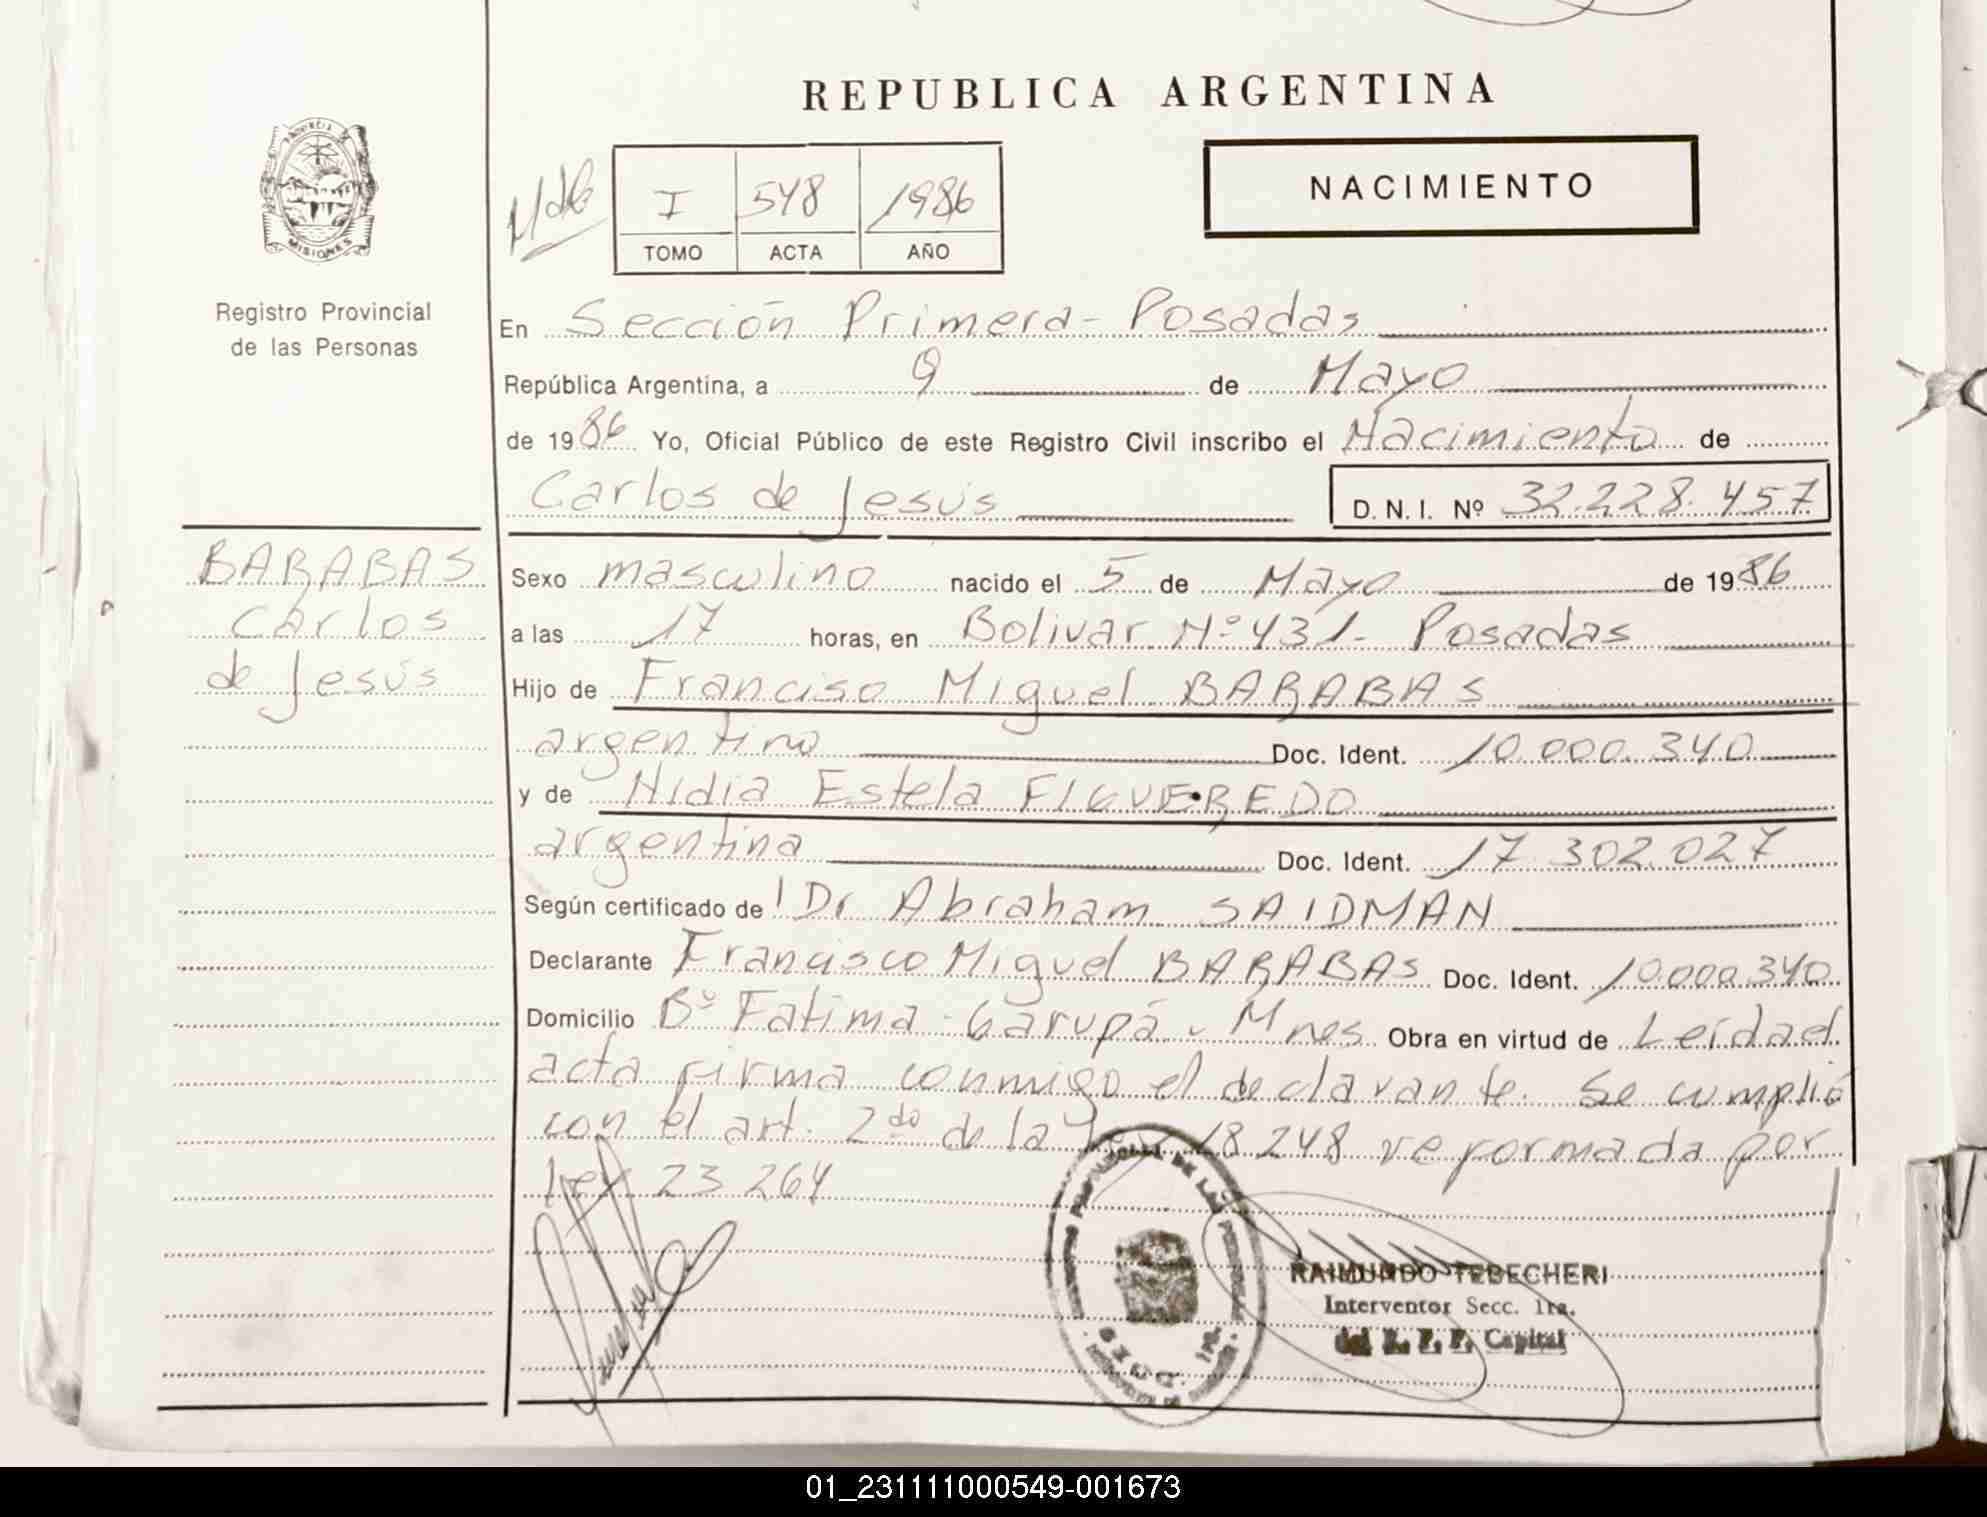 REPUBLICA ARGENTINA
PROVINCIA
MISIONES
Registro Provincial
de las Personas
I 548 1986
TOMO ACTA AÑO
NACIMIENTO
En Sección Primera - Posadas
República Argentina, a 9 de Mayo
de 1986 Yo, Oficial Público de este Registro Civil inscribo el Nacimiento de
Carlos de Jesús D.N.I. Nº 32.228.457
BARABAS
Carlos
de Jesús
Sexo masculino nacido el 5 de Mayo de 1986
a las 17 horas, en Bolivar Nº 431 - Posadas
Hijo de Franciso Miguel BARABAS
argentino Doc. Ident. 10.000.340
y de Nidia Estela FIGUEREDO
argentina Doc. Ident. 17.302.027
Según certificado de Dr Abraham SAIDMAN
Declarante Francisco Miguel BARABAS Doc. Ident. 10.000.340
Domicilio Bº Fatima - Garupá - Mnes Obra en virtud de Leída el
acta firma conmigo el declarante. Se cumplió
con el art. 2do de la 18.248 reformada por
ley 23.264
RAIMUNDO TEBECHERI
Interventor Secc. 1ra.
del R. P. P. Capital
01_231111000549-001673